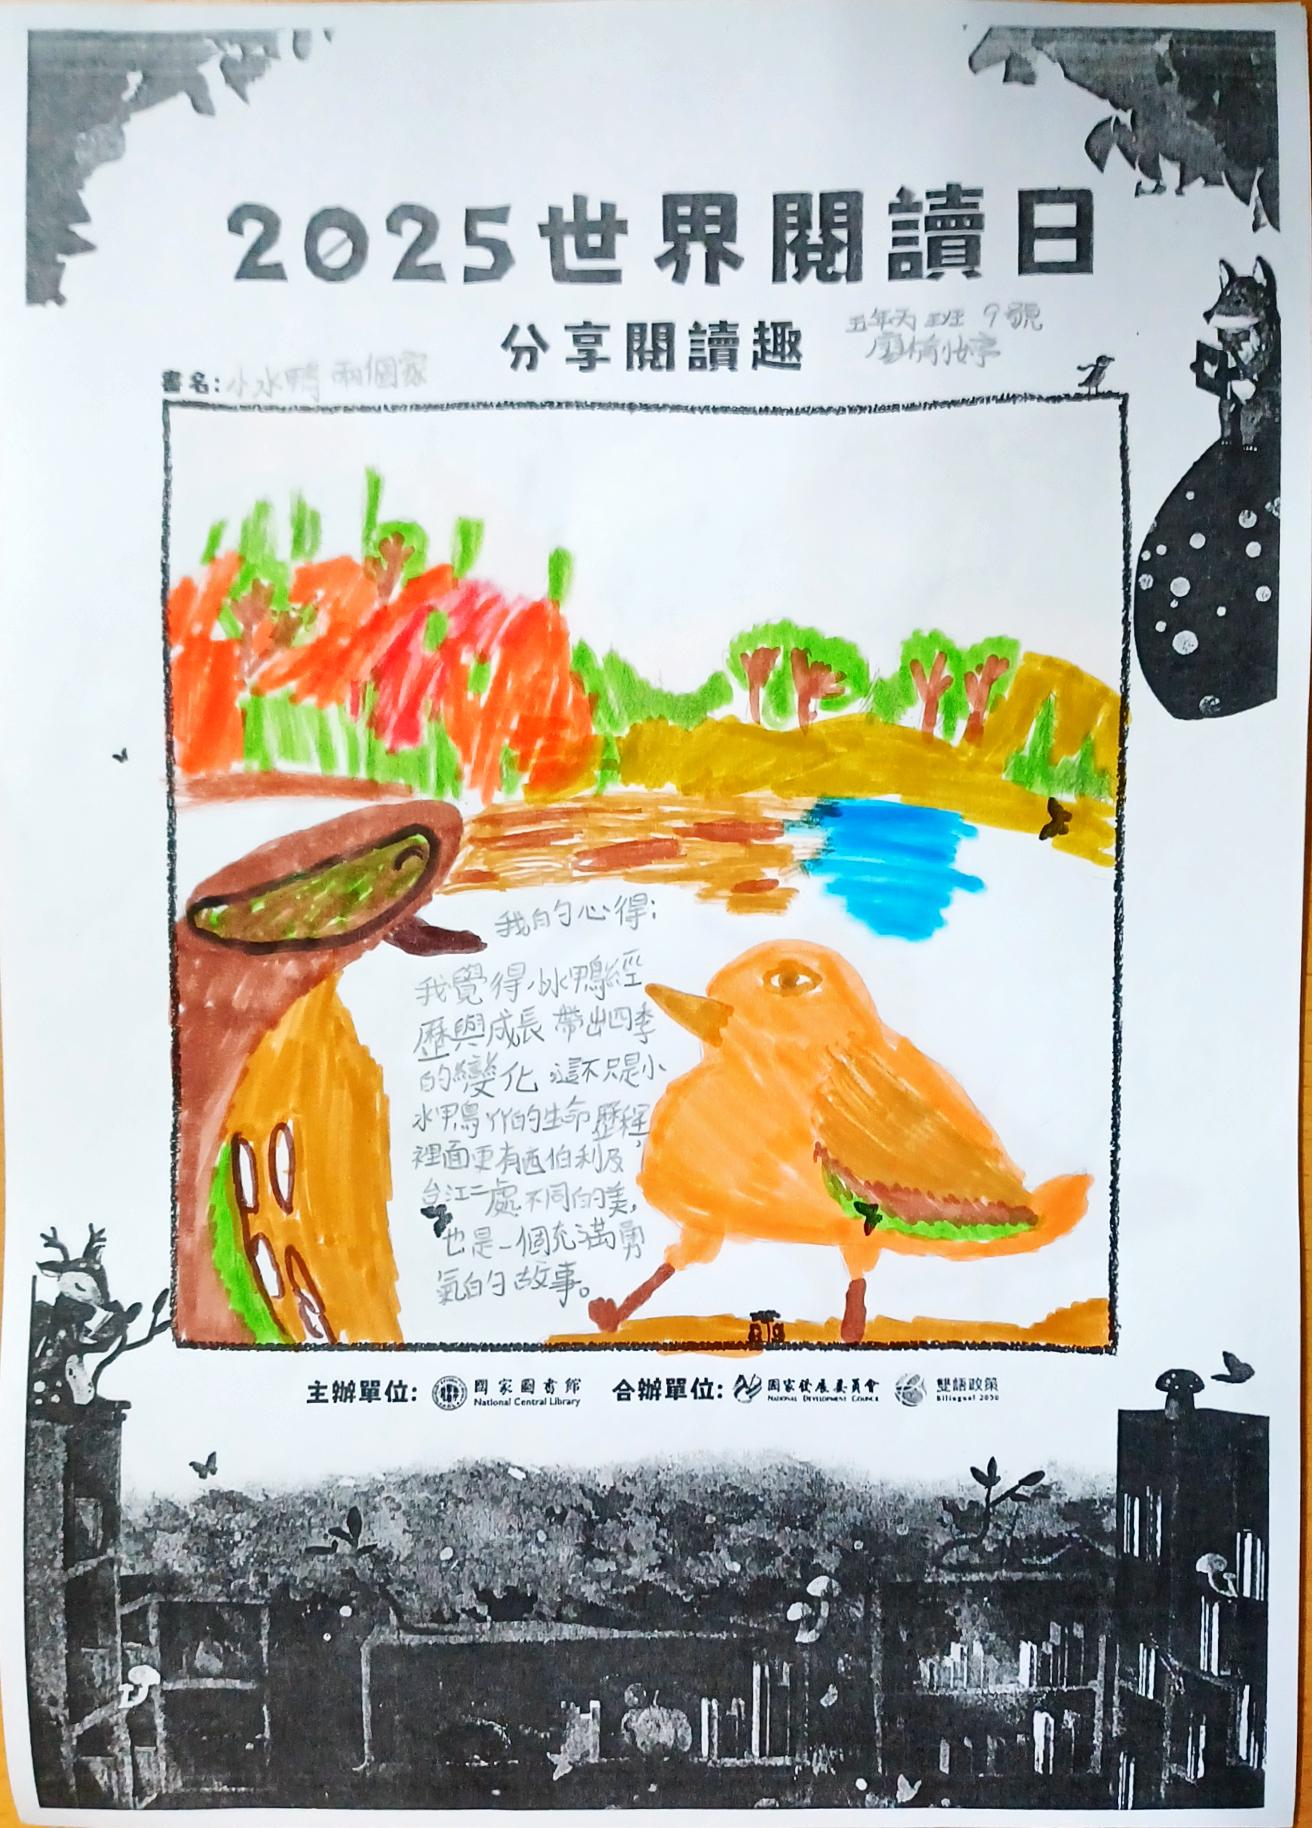 2025世界閱讀日
分享閱讀趣
五年丙班 9號
廖
書名:小水鴨兩個家
我的心得:
我覺得小水鴨經
歷與成長 帶出四季
的變化 這不只是小
水鴨ㄚㄚ的生命歷程,
裡面更有西伯利及
台江二處不同的美,
也是一個充滿勇
氣的故事。
主辦單位: 國家圖書館 合辦單位: 國家發展委員會 雙語政策
National Central Library National Development Council Bilingual 2030